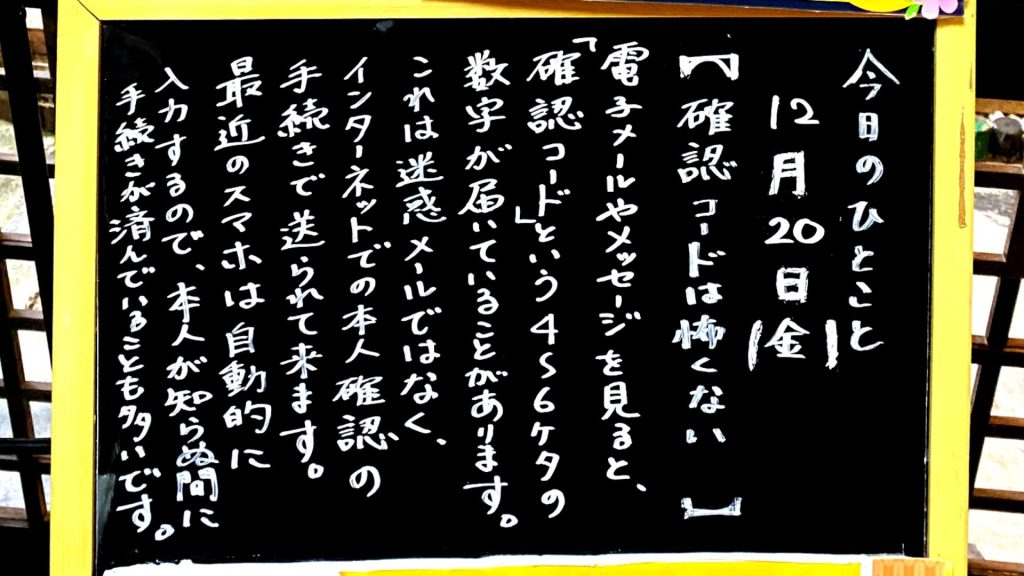 今日のひとこと
12月20日(金)
【確認コードは怖くない】
電子メールやメッセージを見ると、
「確認コード」という4〜6ケタの
数字が届いていることがあります。
これは迷惑メールではなく、
インターネットでの本人確認の
手続きで送られて来ます。
最近のスマホは自動的に
入力するので、本人が知らぬ間に
手続きが済んでいることも多いです。